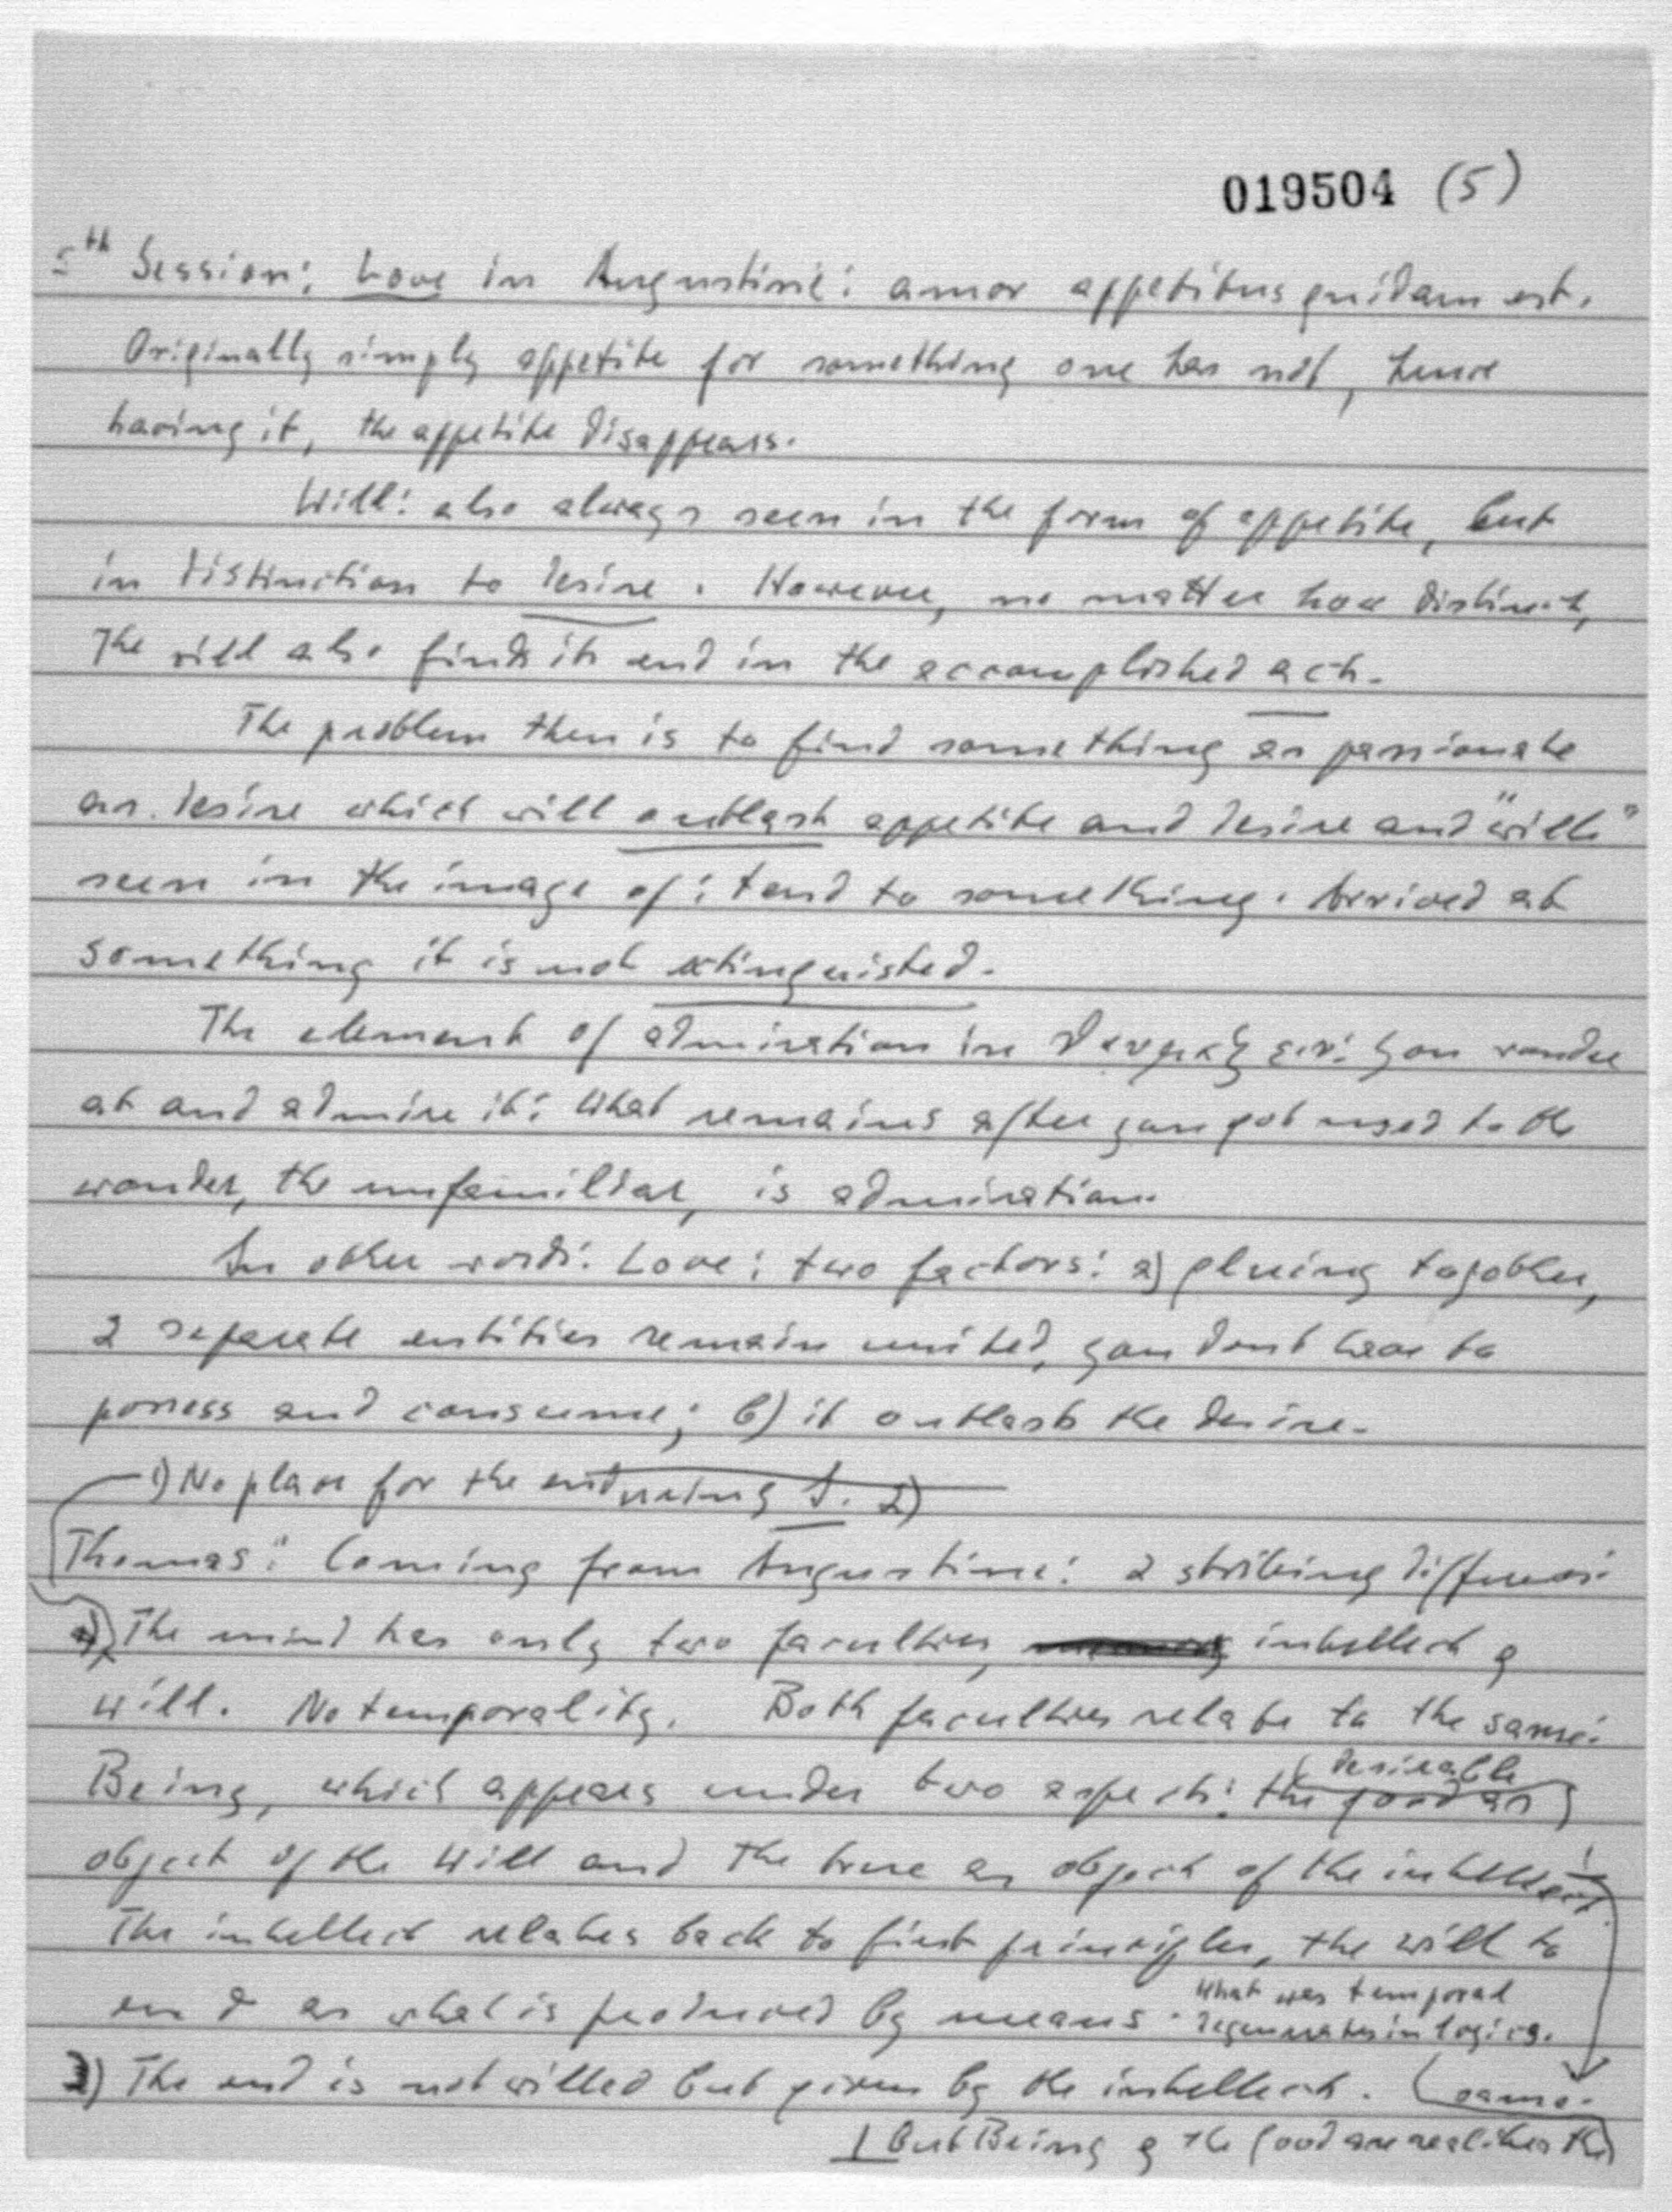 019504 (5)
5th Session: Love in Augustine: amor appetitus quidam est.
Originally simply appetite for something one has not, hence
having it, the appetite disappears.
Will: also always seen in the form of appetite, but
in distinction to desire. However, no matter how distinct,
the will also finds its end in the accomplished act.
The problem then is to find something as passionate
as desire which will outlast appetite and desire and "will"
seen in the image of: tend to something. Arrived at
something it is not extinguished.
The element of admiration in you wonder
at and admire it: What remains after you got used to the
wonder, the unfamiliar, is admiration.
In other words: Love: two factors: a) gluing together,
2 separate entities remain united, you dont have to
possess and consume; b) it outlasts the desire.
1) No place for the enduring I. 2)
Thomas: Coming from Augustine: 2 striking
The mind has only two faculties, intellect &
will. No temporality. Both faculties relate to the same:
desirable
Being, which appears under two aspects: the good as
object of the Will and the true as object of the intellect.
The intellect relates back to first principles, the will to
What was temporal
end as what is produced by means. degenerates in logics.
2) The end is not willed but given by the intellect. (same.
But Being & the Good are realities the